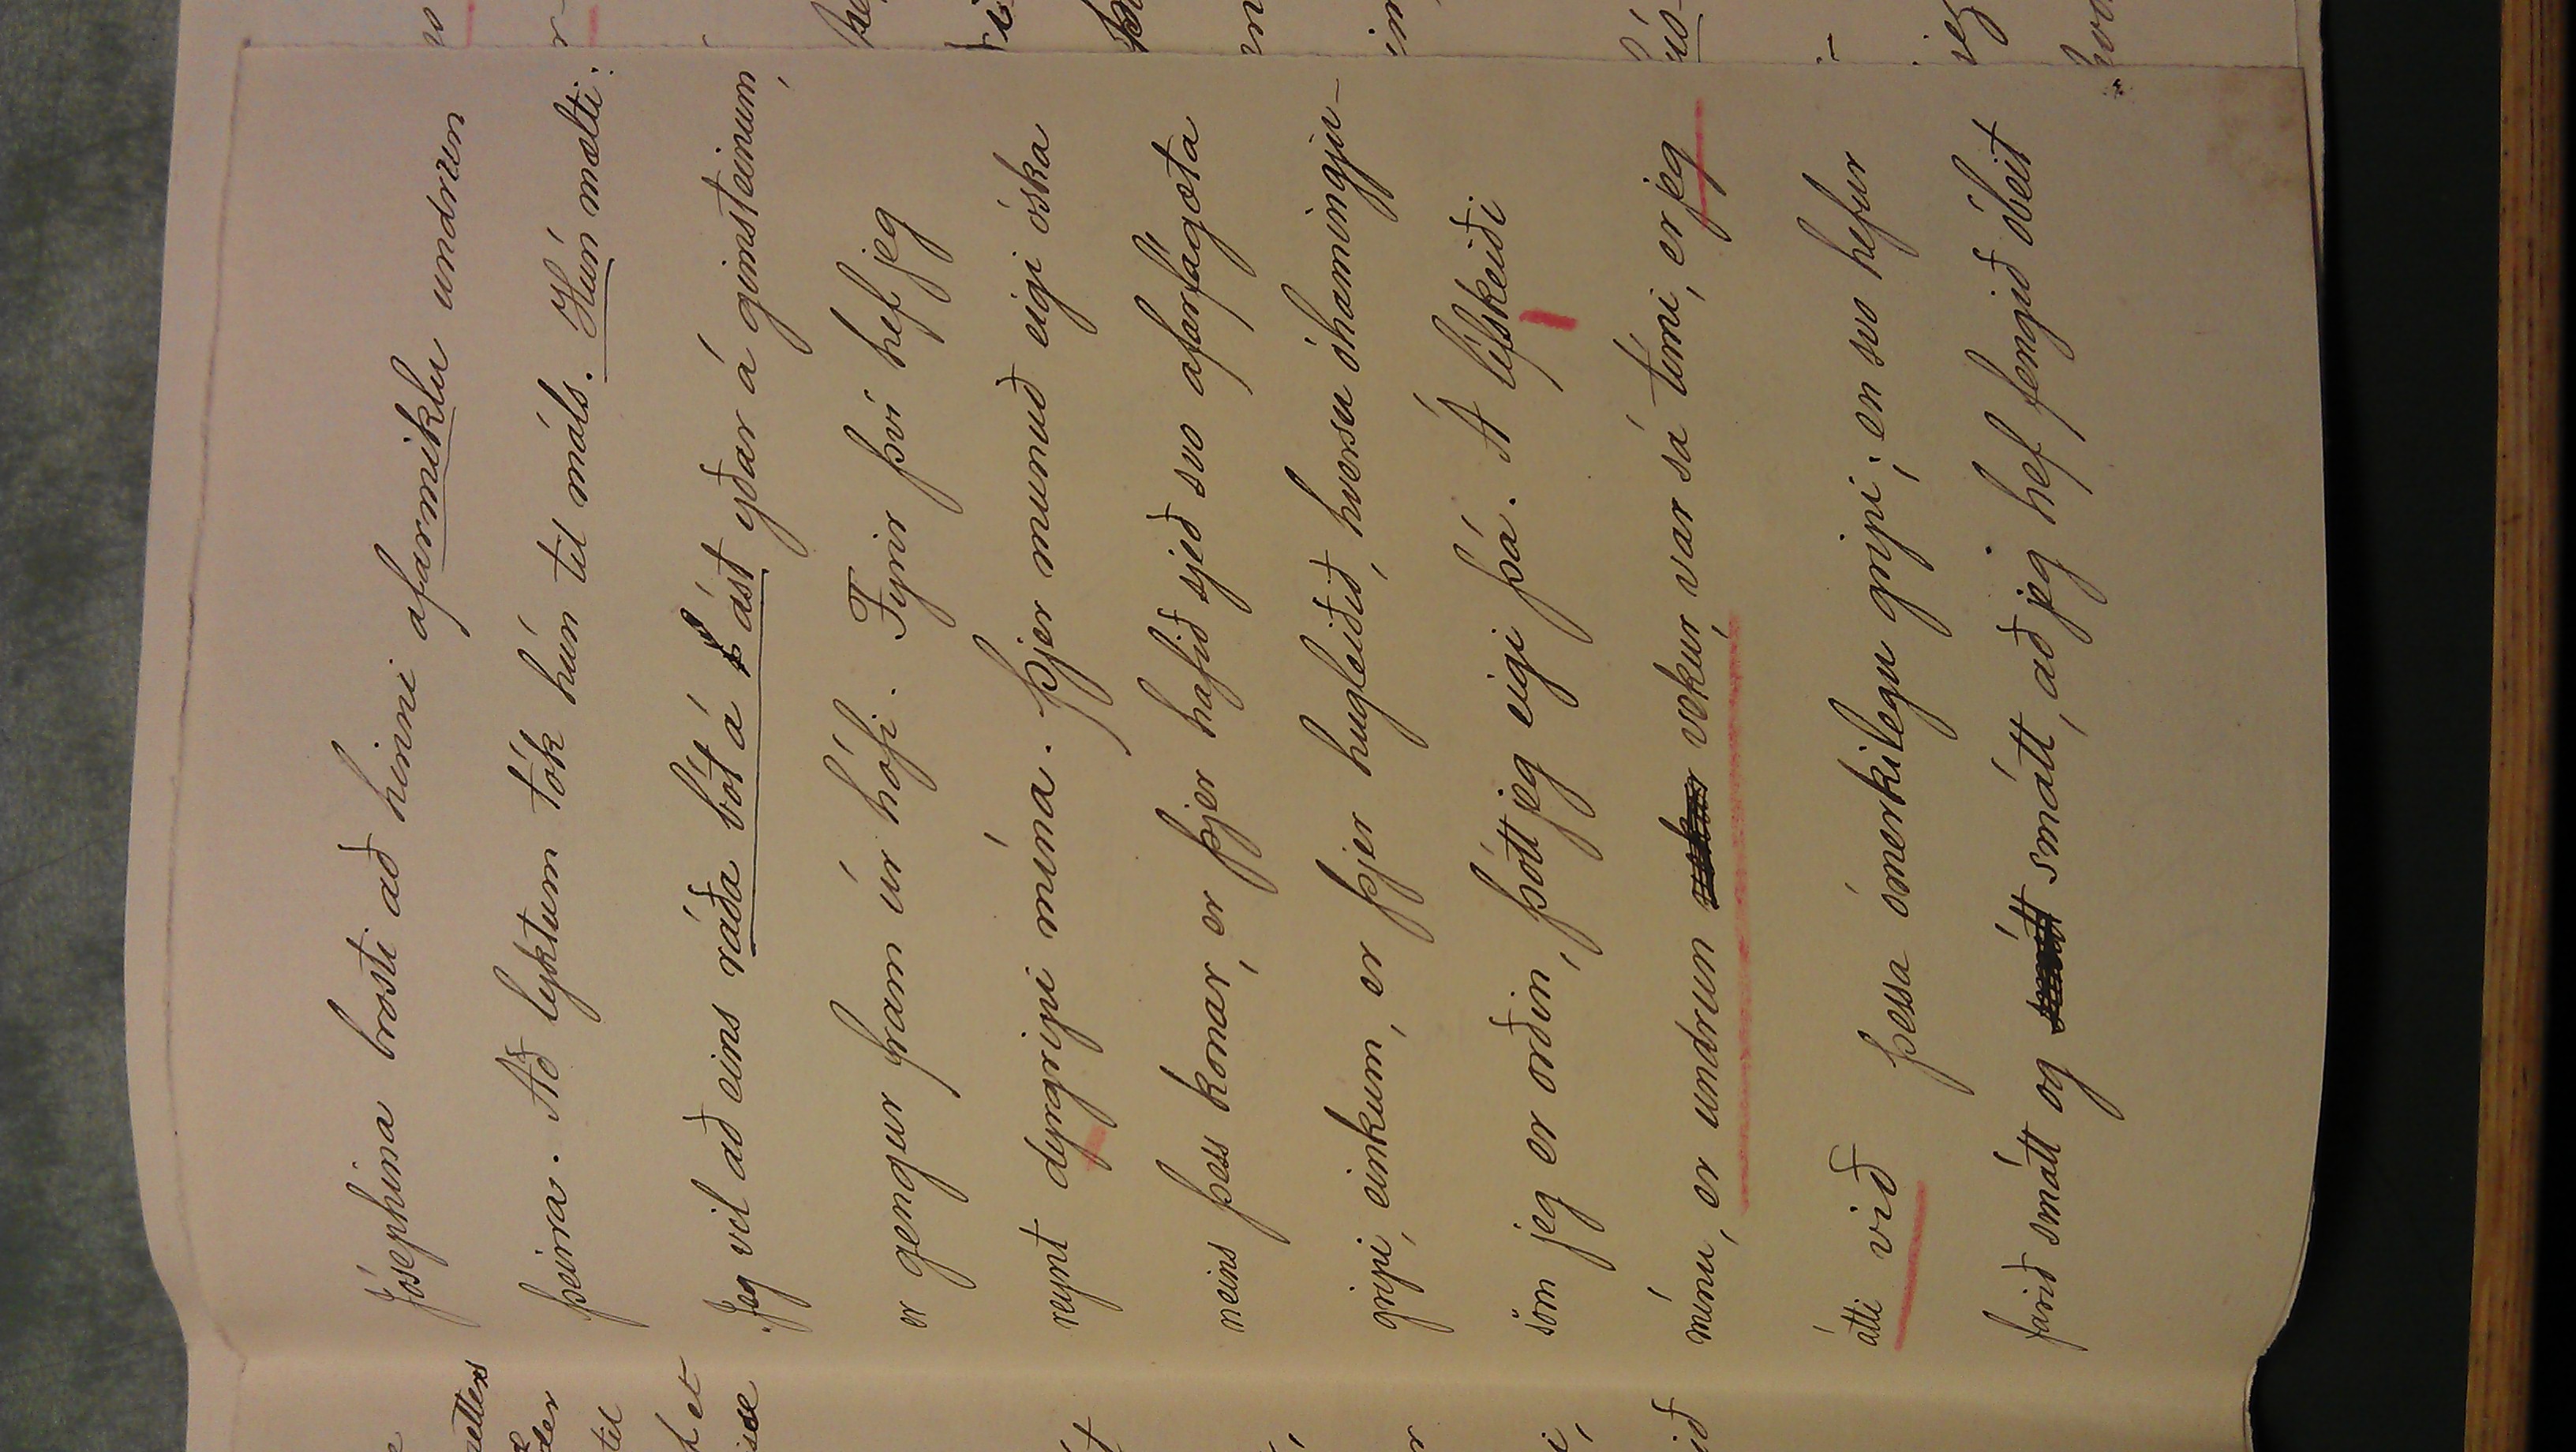 Jósephina brosti að hinni afarmiklu undrun
þeirra. Að lyktum tók hún til máls. Hún mælti:
"Jeg vil að eins ráða bót á ást yðar á gimsteinum,
er gengur fram úr hófi. Fyrir því hef jeg
reynt dýrgripi mína. Þjer munuð eigi óska
neins þess konar, er þjer hafið sjeð svo afarfágæta
gripi, einkum, er þjer hugleiðið, hversu óhamingju-
söm jeg er orðin, þótt jeg eigi þá. Á lífsskeiði
mínu, er undrun vekur, var sá tími, er jeg
átti við þessa ómerkilegu gripi; en svo hefur
farið smátt og smátt, að jeg hef fengið óbeit